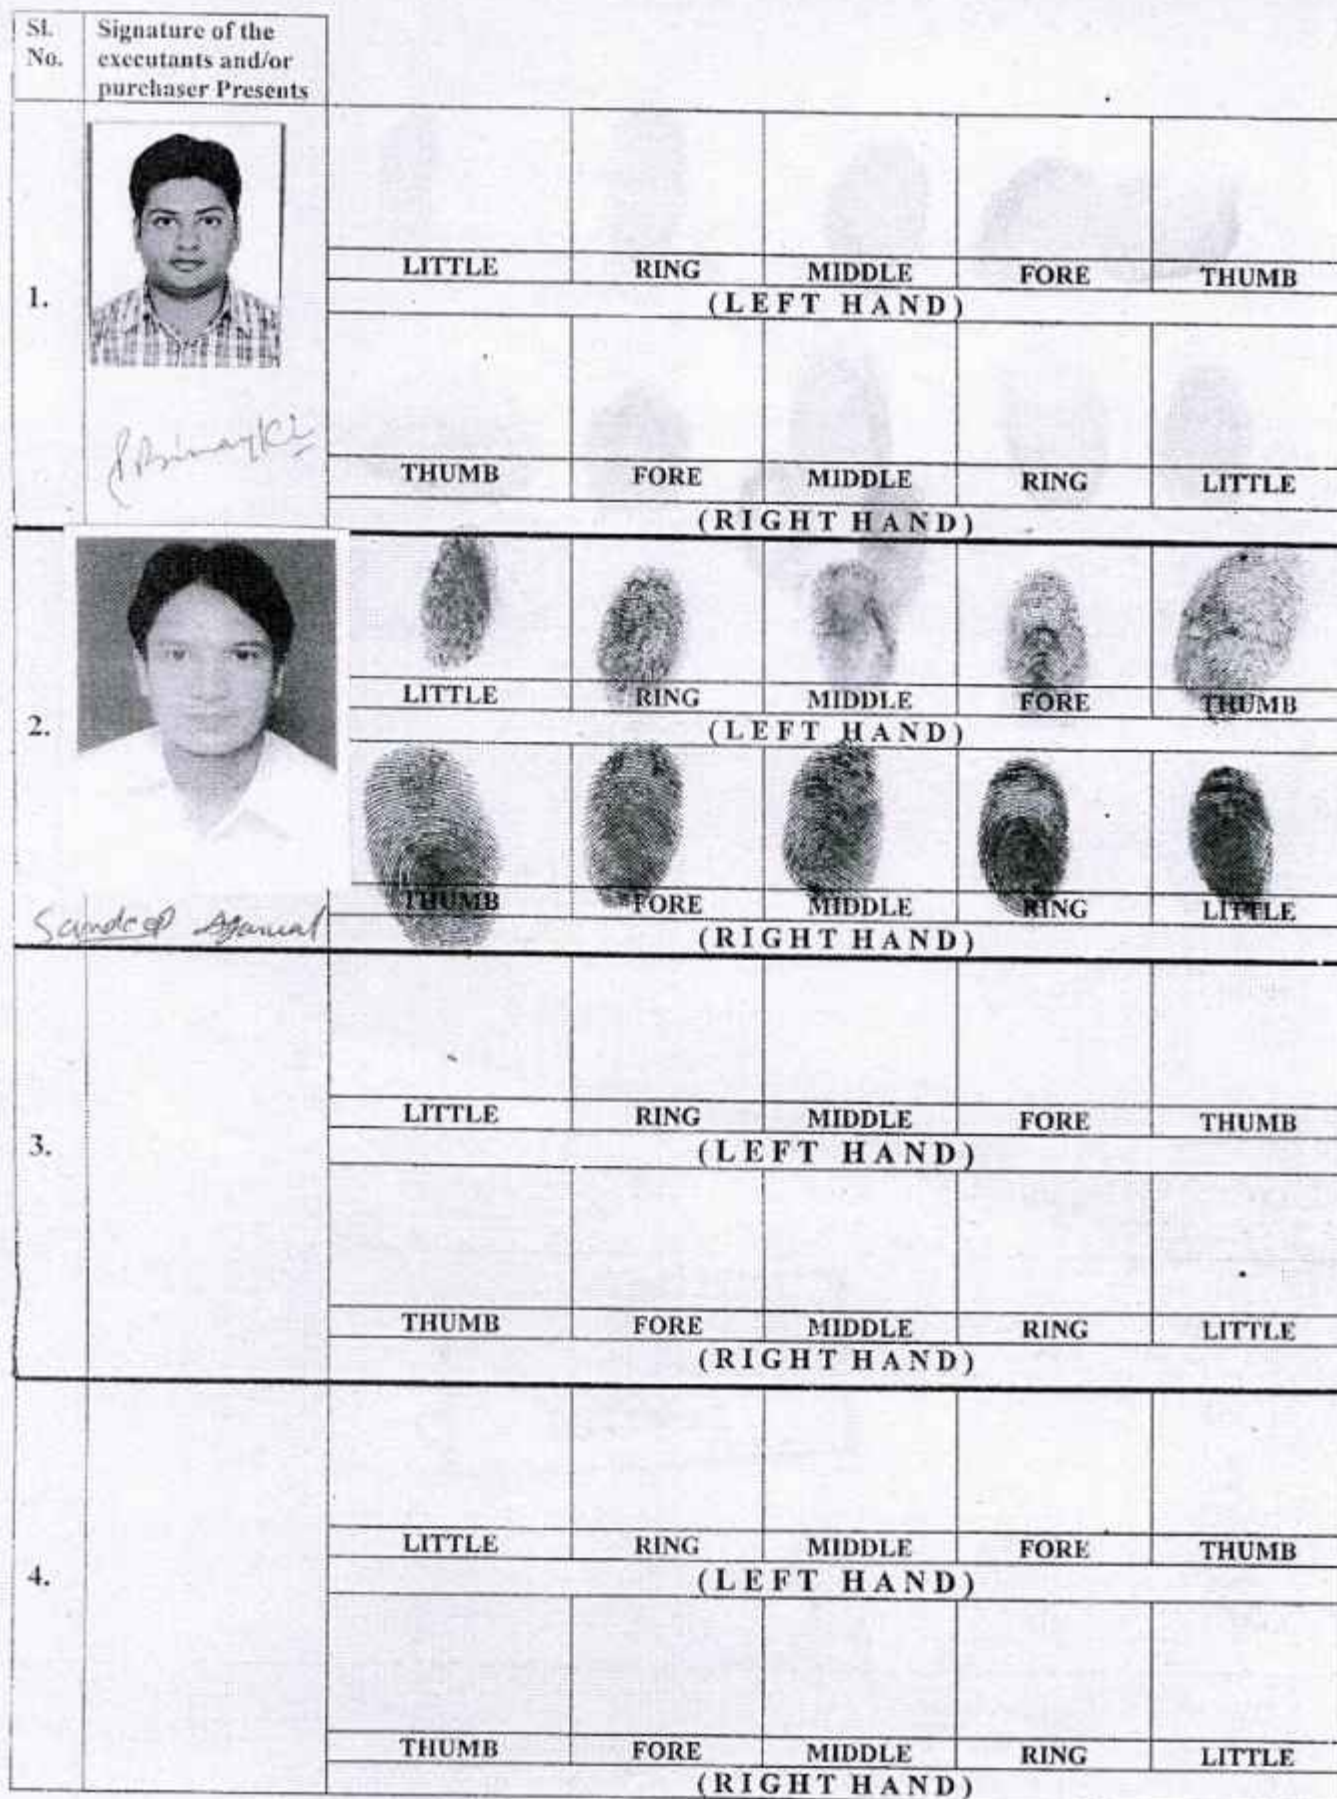 Sl. No.
Signature of the executants and/or purchaser Presents
1.
LITTLE RING MIDDLE FORE THUMB
(LEFT HAND)
THUMB FORE MIDDLE RING LITTLE
(RIGHT HAND)
2.
LITTLE RING MIDDLE FORE THUMB
(LEFT HAND)
THUMB FORE MIDDLE RING LITTLE
Sandeep Agarwal
(RIGHT HAND)
3.
LITTLE RING MIDDLE FORE THUMB
(LEFT HAND)
THUMB FORE MIDDLE RING LITTLE
(RIGHT HAND)
4.
LITTLE RING MIDDLE FORE THUMB
(LEFT HAND)
THUMB FORE MIDDLE RING LITTLE
(RIGHT HAND)